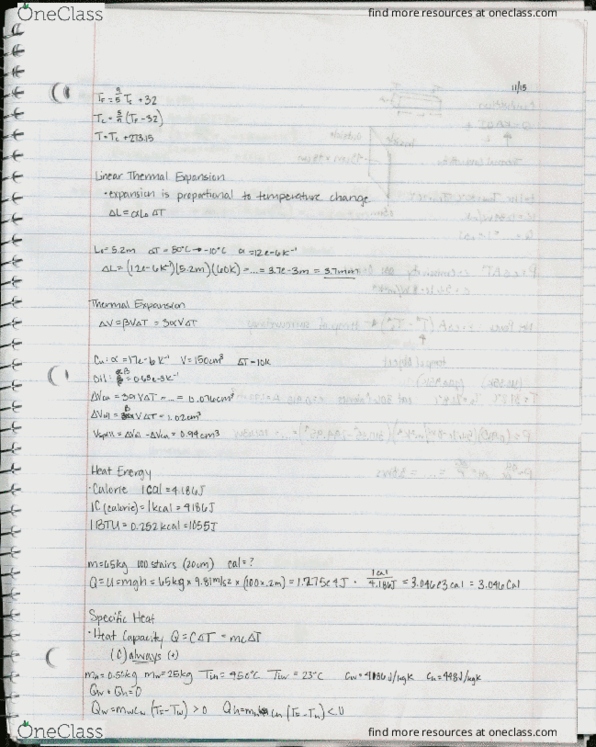 OneClass
find more resources at oneclass.com
11/15
T_F = 9/5 T_c + 32
T_c = 5/9 (T_F - 32)
T = T_c + 273.15
Linear Thermal Expansion
• expansion is proportional to temperature change
ΔL = αL₀ΔT
L₀ = 5.2m ΔT = 50°C → -10°C α = 12e-6 K⁻¹
ΔL = (12e-6K⁻¹)(5.2m)(60K) = ... = 3.7e-3m = 3.7mm
Thermal Expansion
ΔV = βVΔT = 3αVΔT
Cu: α = 17e-6 K⁻¹ V = 150cm³ ΔT = 10K
Oil: β = 0.68e-3K⁻¹
ΔVcu = 3αVΔT = ... = 0.076cm³
VΔT = 1.02cm³
Vspill = ΔVoil - ΔVcu = 0.94cm³
Heat Energy
• Calorie 1cal = 4.186J
1C (calorie) = 1kcal = 4186J
1BTU = 0.252kcal = 1055J
m = 65kg 100 stairs (20cm) cal = ?
Q = U = mgh = 65kg × 9.81m/s² × (100 × .2m) = 1.275e4J · 1cal/4.186J = 3.046e3cal = 3.046Cal
Specific Heat
• Heat Capacity Q = CΔT = mcΔT
(C) always (+)
T_w = 23°C
Qw + Qh = 0
Qw = mwcw (T_F - T_w) > 0 Qh = (T_F - T_h) < 0
OneClass
find more resources at oneclass.com